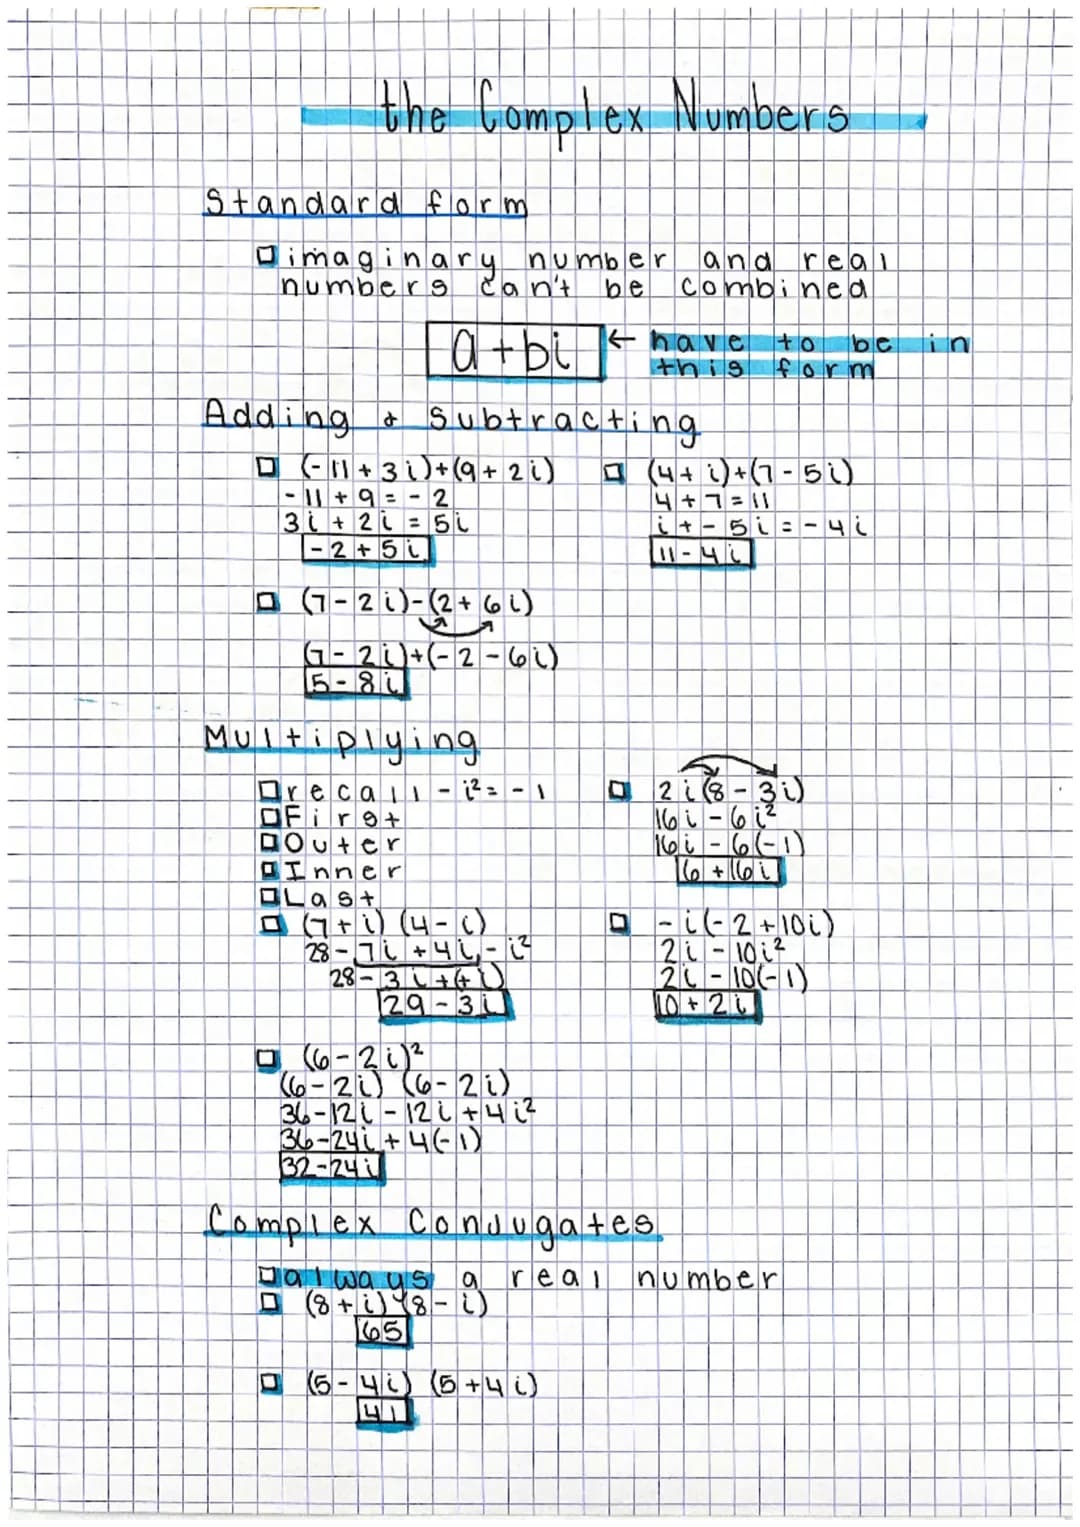 the Complex Numbers
Standard form
imaginary number and real
numbers can't be combined
a + bi ← have to be in
this form
Adding & Subtracting
(-11 + 3i)+(9 + 2i)
-11 + 9 = -2
3i + 2i = 5i
-2 + 5i
(4 + i)+(7 - 5i)
4 + 7 = 11
i + - 5i = -4i
11 - 4i
(7 - 2i)-(2 + 6i)
(7 - 2i)+(-2 - 6i)
5 - 8i
Multiplying
recall - i² = -1
First
Outer
Inner
Last
(7 + i) (4 - i)
28 - 7i + 4i - i²
28 - 3i + (+ 1)
29 - 3i
2i(8 - 3i)
16i - 6i²
16i - 6(-1)
6 + 16i
-i(-2 + 10i)
2i - 10i²
2i - 10(-1)
10 + 2i
(6 - 2i)²
(6 - 2i) (6 - 2i)
36 - 12i - 12i + 4i²
36 - 24i + 4(-1)
32 - 24i
Complex Conjugates
always a real number
(8 + i)(8 - i)
65
(5 - 4i) (5 + 4i)
41